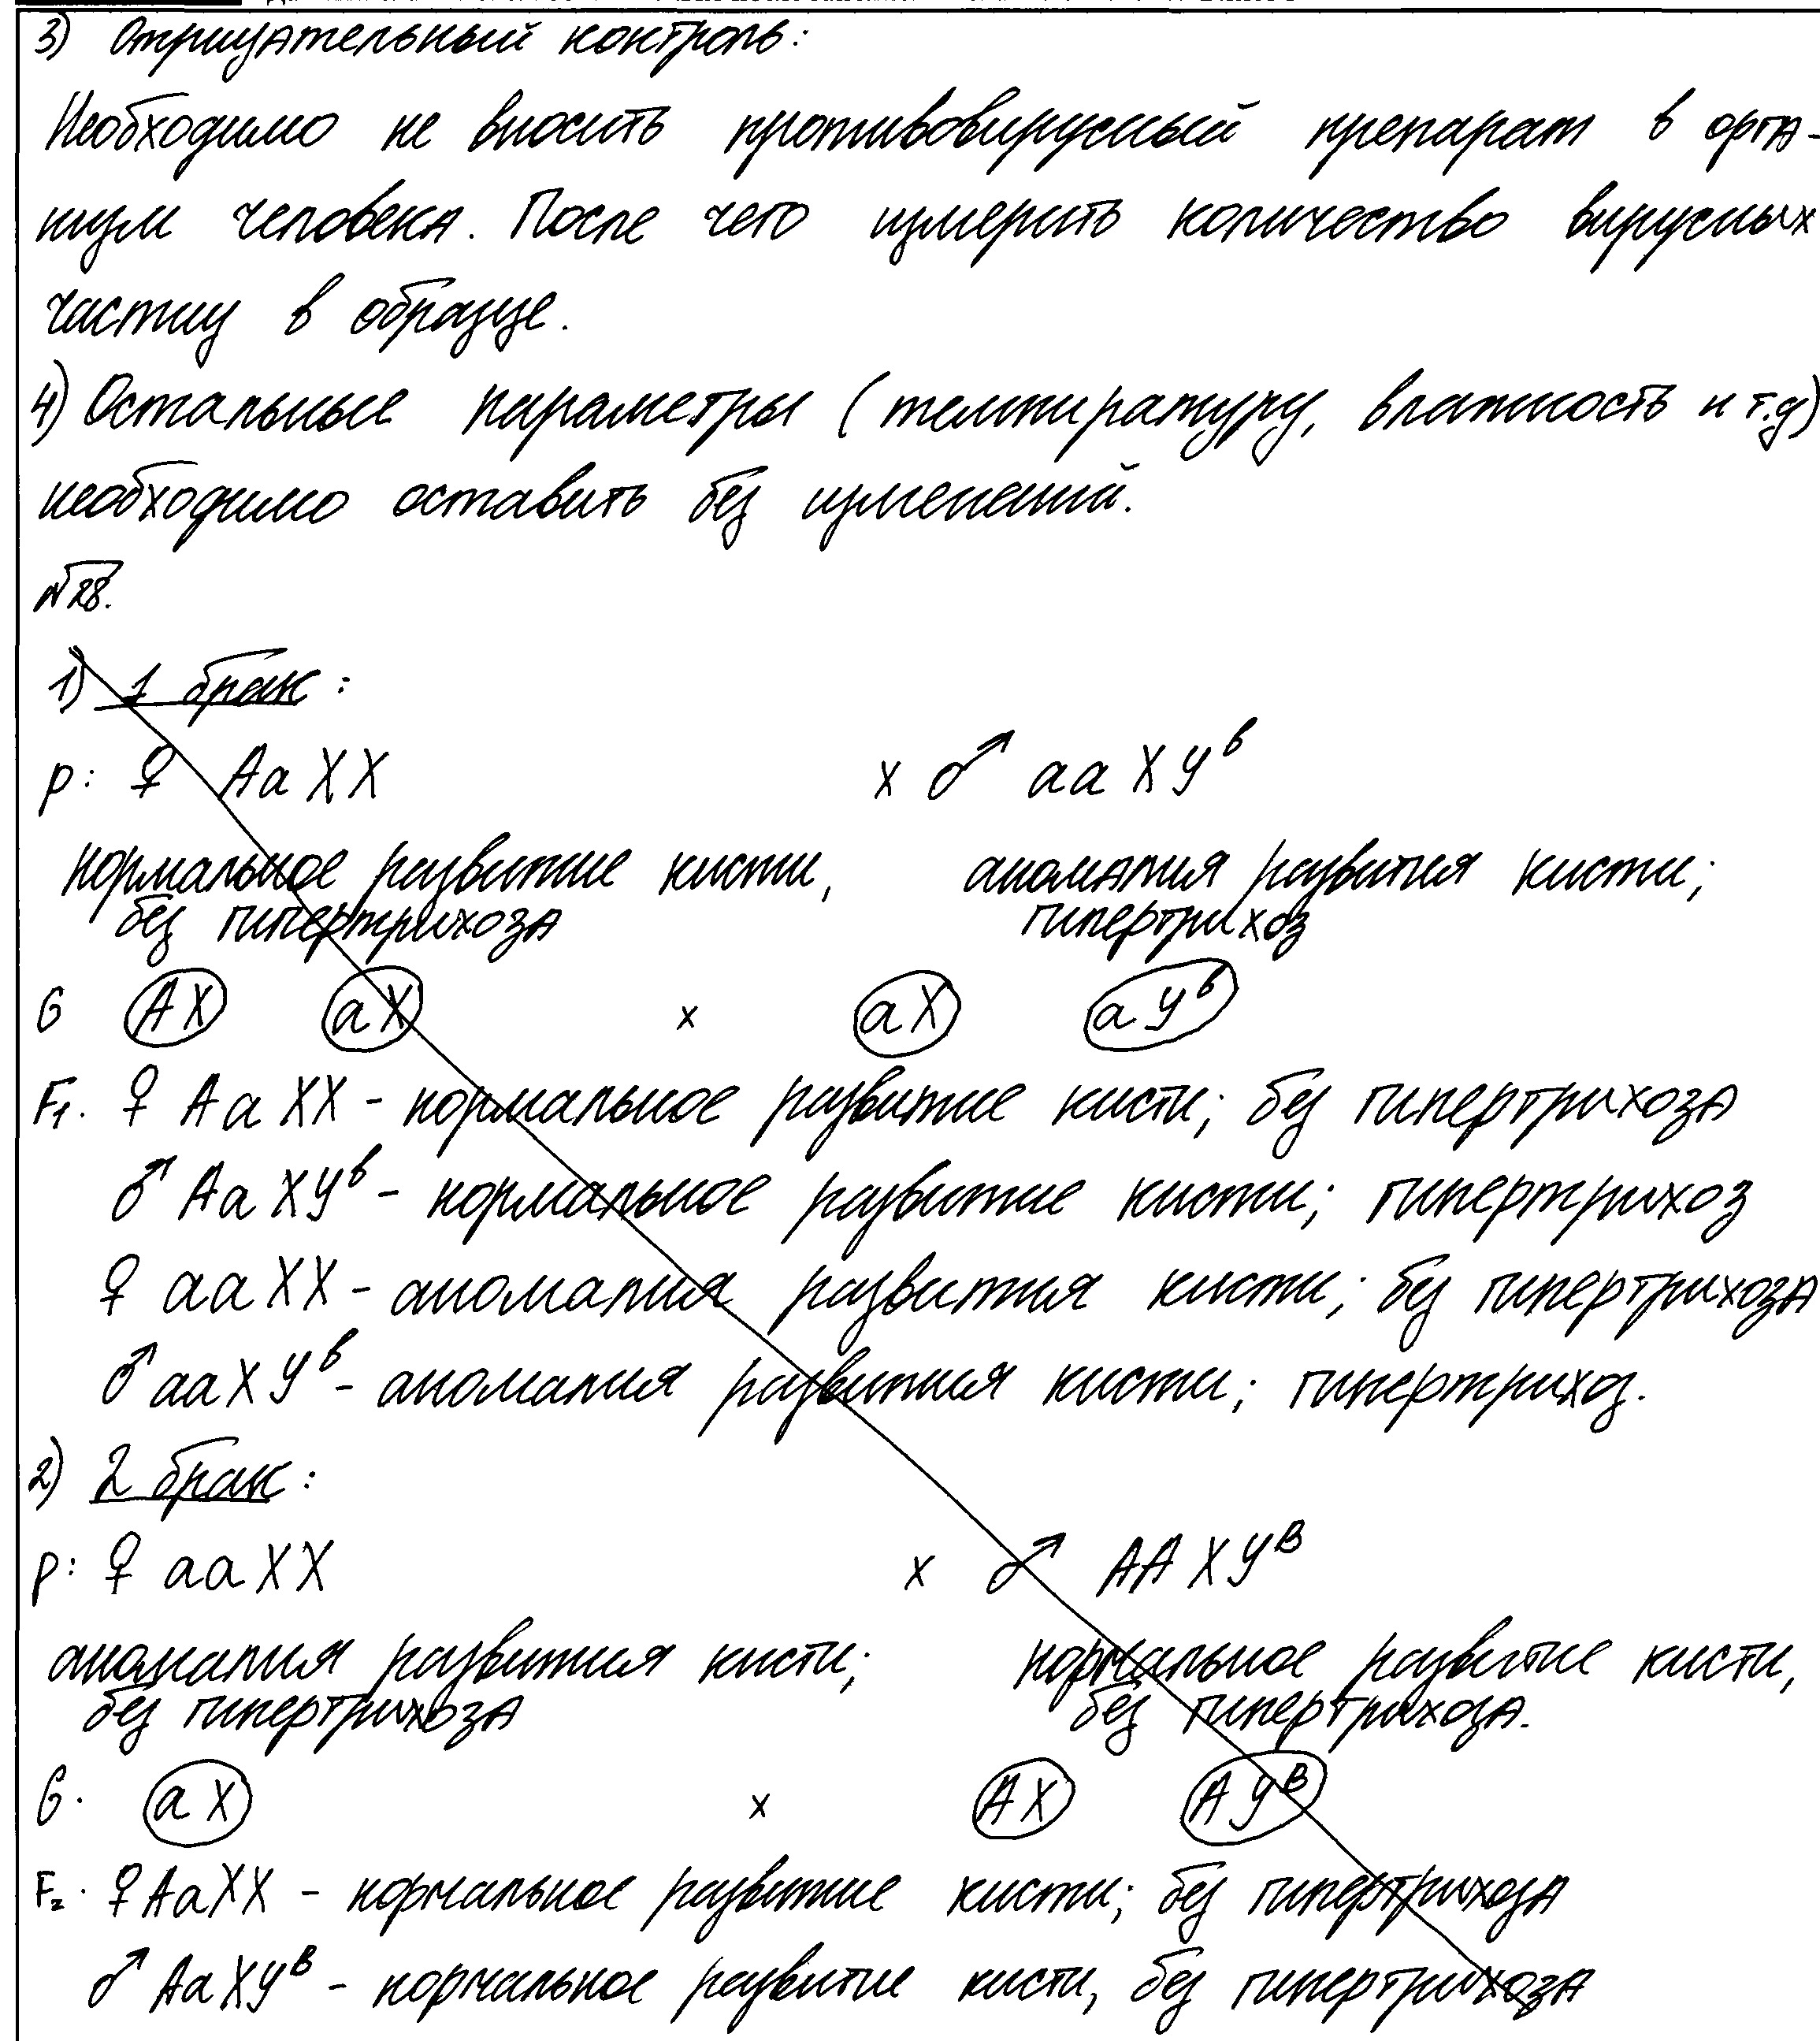 3) Отрицательный контроль:
Необходимо не вносить противовирусный препарат в орга-
низм человека. После чего измерить количество вирусных
частиц в образце.
4) Остальные параметры (темпиратуру, влажность и т.д)
необходимо оставить без изменений.
№28.
1) 1 брак:
P: ♀ Aa XX x ♂ aa XY^b
нормальное развитие кисти, аномалия развития кисти;
без гипертрихоза гипертрихоз
G AX aX x aX aY^b
F₁. ♀ Aa XX - нормальное развитие кисти; без гипертрихоза
♂ Aa XY^b - нормальное развитие кисти; гипертрихоз
♀ aa XX - аномалия развития кисти; без гипертрихоза
♂ aa XY^b - аномалия развития кисти; гипертрихоз.
2) 2 брак:
P: ♀ aa XX x ♂ AA XY^B
аномалия развития кисти; нормальное развитие кисти,
без гипертрихоза без гипертрихоза.
G. aX x AX AY^B
F₂. ♀ Aa XX - нормальное развитие кисти; без гипертрихоза
♂ Aa XY^B - нормальное развитие кисти, без гипертрихоза